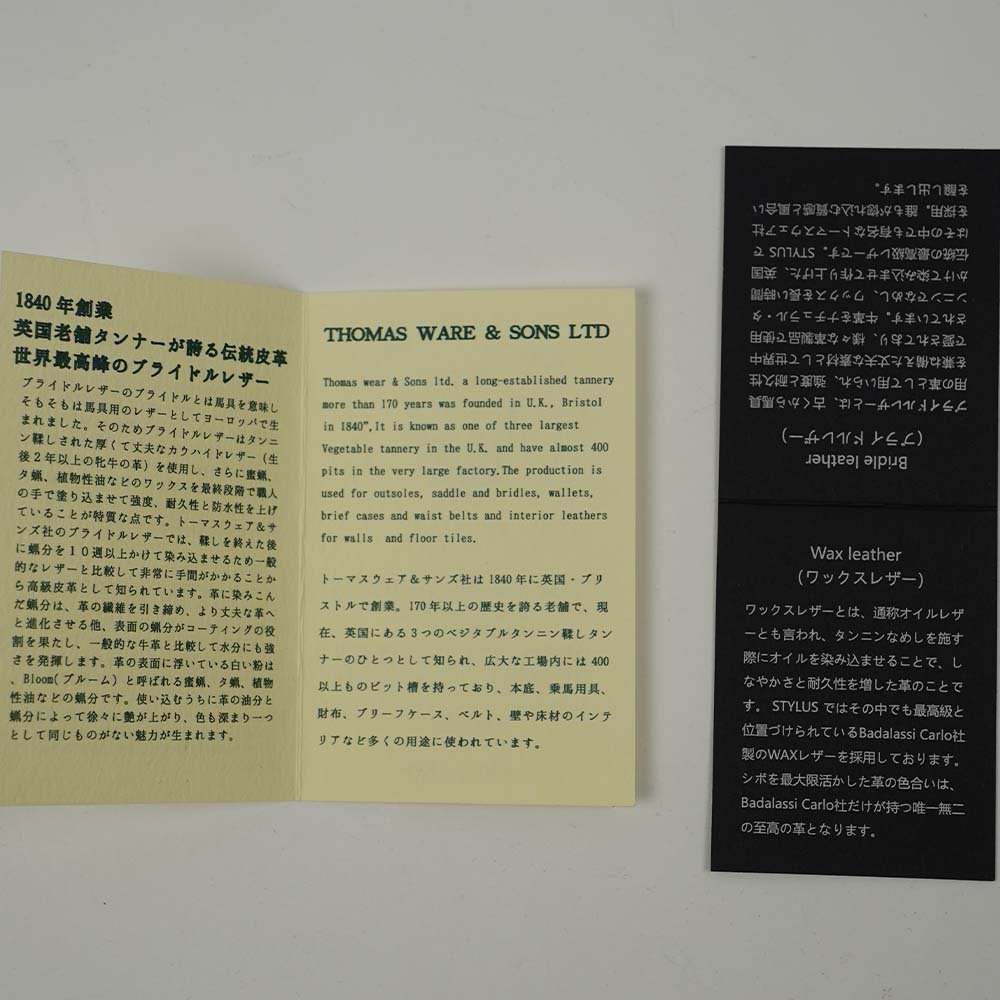 1840年創業
英国老舗タンナーが誇る伝統皮革
世界最高峰のブライドルレザー
ブライドルレザーのブライドルとは馬具を意味し
そもそもは馬具用のレザーとしてヨーロッパで生
まれました。そのためブライドルレザーはタンニ
ン鞣しされた厚くて丈夫なカウハイドレザー（生
後２年以上の牝牛の革）を使用し、さらに蜜蝋、
タ蝋、植物性油などのワックスを最終段階で職人
の手で塗り込ませて強度、耐久性と防水性を上げ
ていることが特質な点です。トーマスウェア＆サ
ンズ社のブライドルレザーでは、鞣しを終えた後
に蝋分を１０週以上かけて染み込ませるため一般
的なレザーと比較して非常に手間がかかることか
ら高級皮革として知られています。革に染みこん
だ蝋分は、革の繊維を引き締め、より丈夫な革へ
と進化させる他、表面の蝋分がコーティングの役
割を果たし、一般的な牛革と比較して水分にも強
さを発揮します。革の表面に浮いている白い粉は
、Bloom(ブルーム）と呼ばれる蜜蝋、タ蝋、植物
性油などの蝋分です。使い込むうちに革の油分と
蝋分によって徐々に艶が上がり、色も深まり一つ
として同じものがない魅力が生まれます。
THOMAS WARE & SONS LTD
Thomas wear & Sons ltd. a long-established tannery
more than 170 years was founded in U.K., Bristol
in 1840",It is known as one of three largest
Vegetable tannery in the U.K. and have almost 400
pits in the very large factory.The production is
used for outsoles, saddle and bridles, wallets,
brief cases and waist belts and interior leathers
for walls and floor tiles.
トーマスウェア＆サンズ社は1840年に英国・ブリ
ストルで創業。170年以上の歴史を誇る老舗で、現
在、英国にある３つのベジタブルタンニン鞣しタン
ナーのひとつとして知られ、広大な工場内には400
以上ものピット槽を持っており、本底、乗馬用具、
財布、ブリーフケース、ベルト、壁や床材のインテ
リアなど多くの用途に使われています。
Bridle leather
(ブライドルレザー)
ブライドルレザーとは、古くから馬具
用の革として用いられ、強度と耐久性
を兼ね備えた丈夫な素材として世界中で
愛されており、様々な革製品で使用
されています。牛革をナチュラル・タ
ンニンでなめし、ワックスを長い時間
かけて染み込ませて作り上げた、英国
伝統の最高級レザーです。STYLUSで
はその中でも有名なトーマスウェア社
を採用。誰もが惚れ込む質感と風合い
を醸し出します。
Wax leather
(ワックスレザー)
ワックスレザーとは、通称オイルレザ
ーとも言われ、タンニンなめしを施す
際にオイルを染み込ませることで、し
なやかさと耐久性を増した革のことで
す。 STYLUSではその中でも最高級と
位置づけられているBadalassi Carlo社
製のWAXレザーを採用しております。
シボを最大限活かした革の色合いは、
Badalassi Carlo社だけが持つ唯一無二
の至高の革となります。